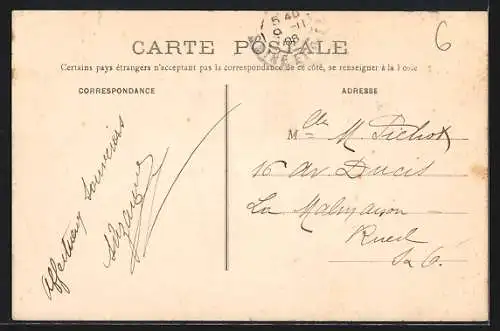 5 AD
9 -11
08
6
CARTE POSTALE
Certains pays étrangers n'acceptant pas la correspondance de ce côté, se renseigner à la Poste
CORRESPONDANCE
Affectueux Souvenirs
ADRESSE
Mlle M. Pichot
16 Av Ducis
La Malmaison
Rueil
S & O.